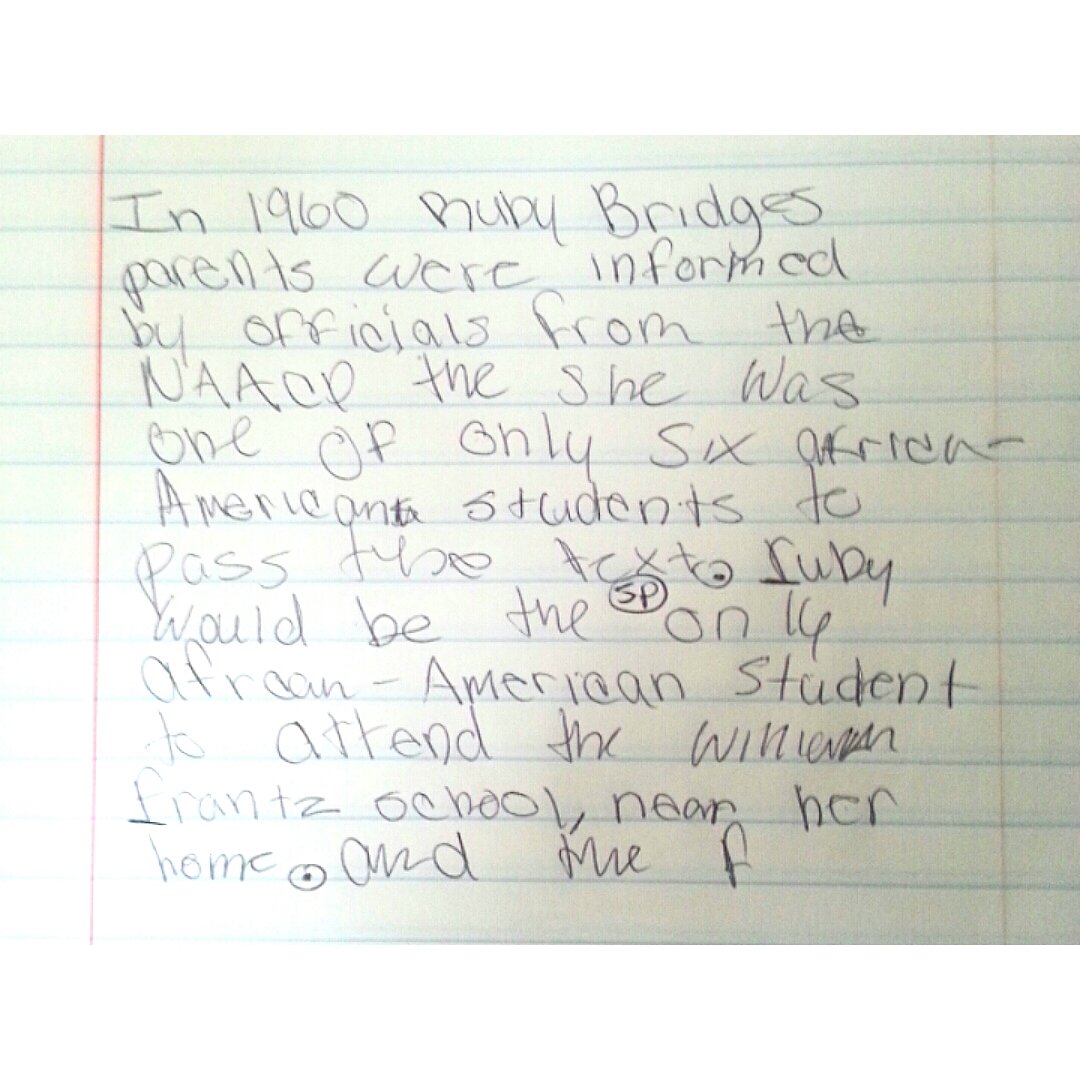 In 1960 Ruby Bridges
parents were informed
by officials from the
NAACP the she was
one of only six africa-
American students to
pass the text. ruby
SP
would be the only
african-American student
to attend the William
frantz school, near her
home. and the f